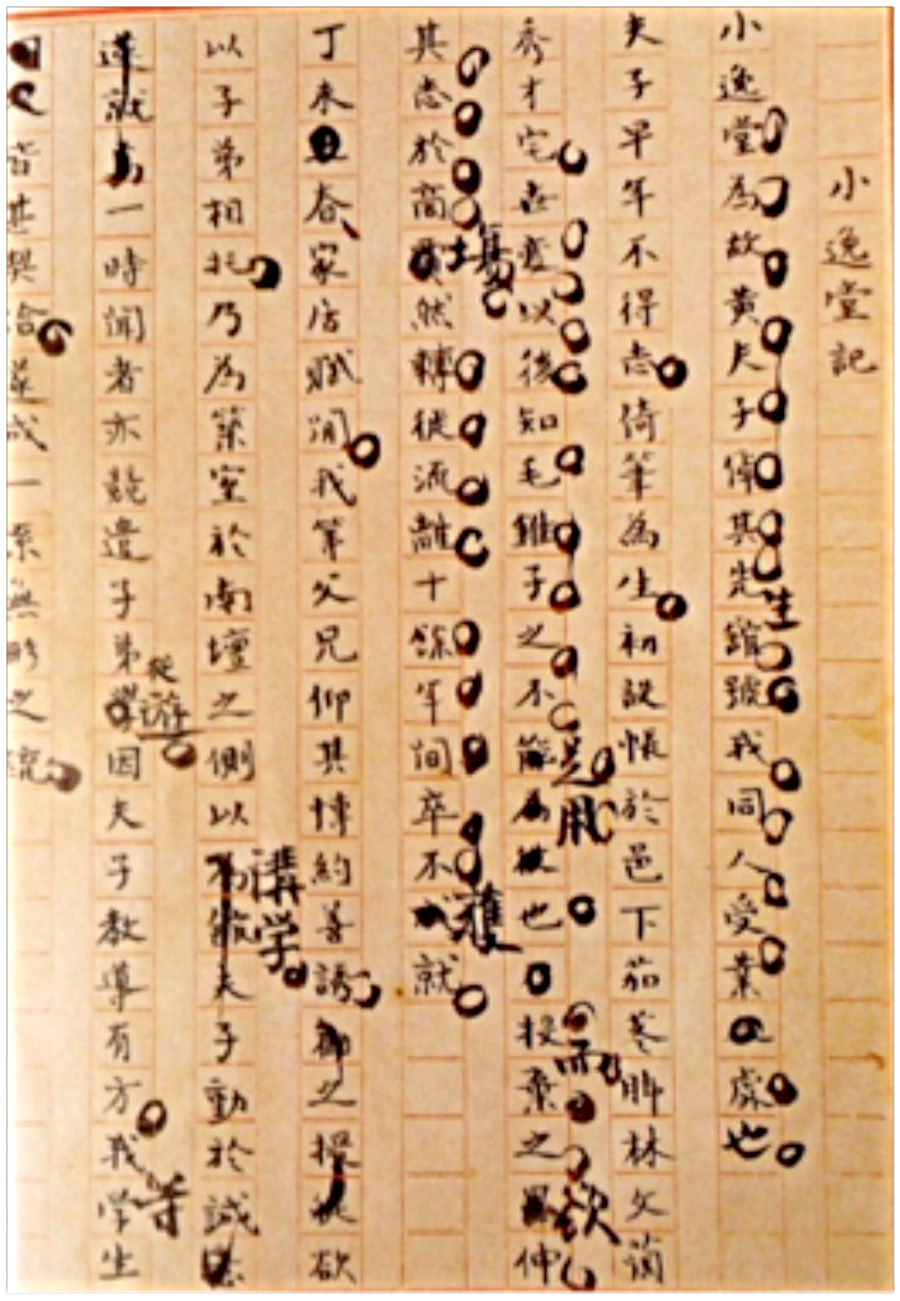 小逸堂記
小逸堂為故黃夫子倬其先生館號我同人受業之處也
夫子早年不得志倚筆為生初設帳於邑下茄苳腳林文蘭
秀才宅無意以後知毛錐子之不足用也投棄之而欲伸
其志於商場然轉徙流離十餘年間卒不獲就
丁未春家居賦閒我等父兄仰其博約善誘之欲
以子弟相托乃為築室於南壇之側以講学夫子動於誠
遂就一時聞者亦競遣子弟從游因夫子教導有方我等学生
皆甚契洽遂成一系無形之統